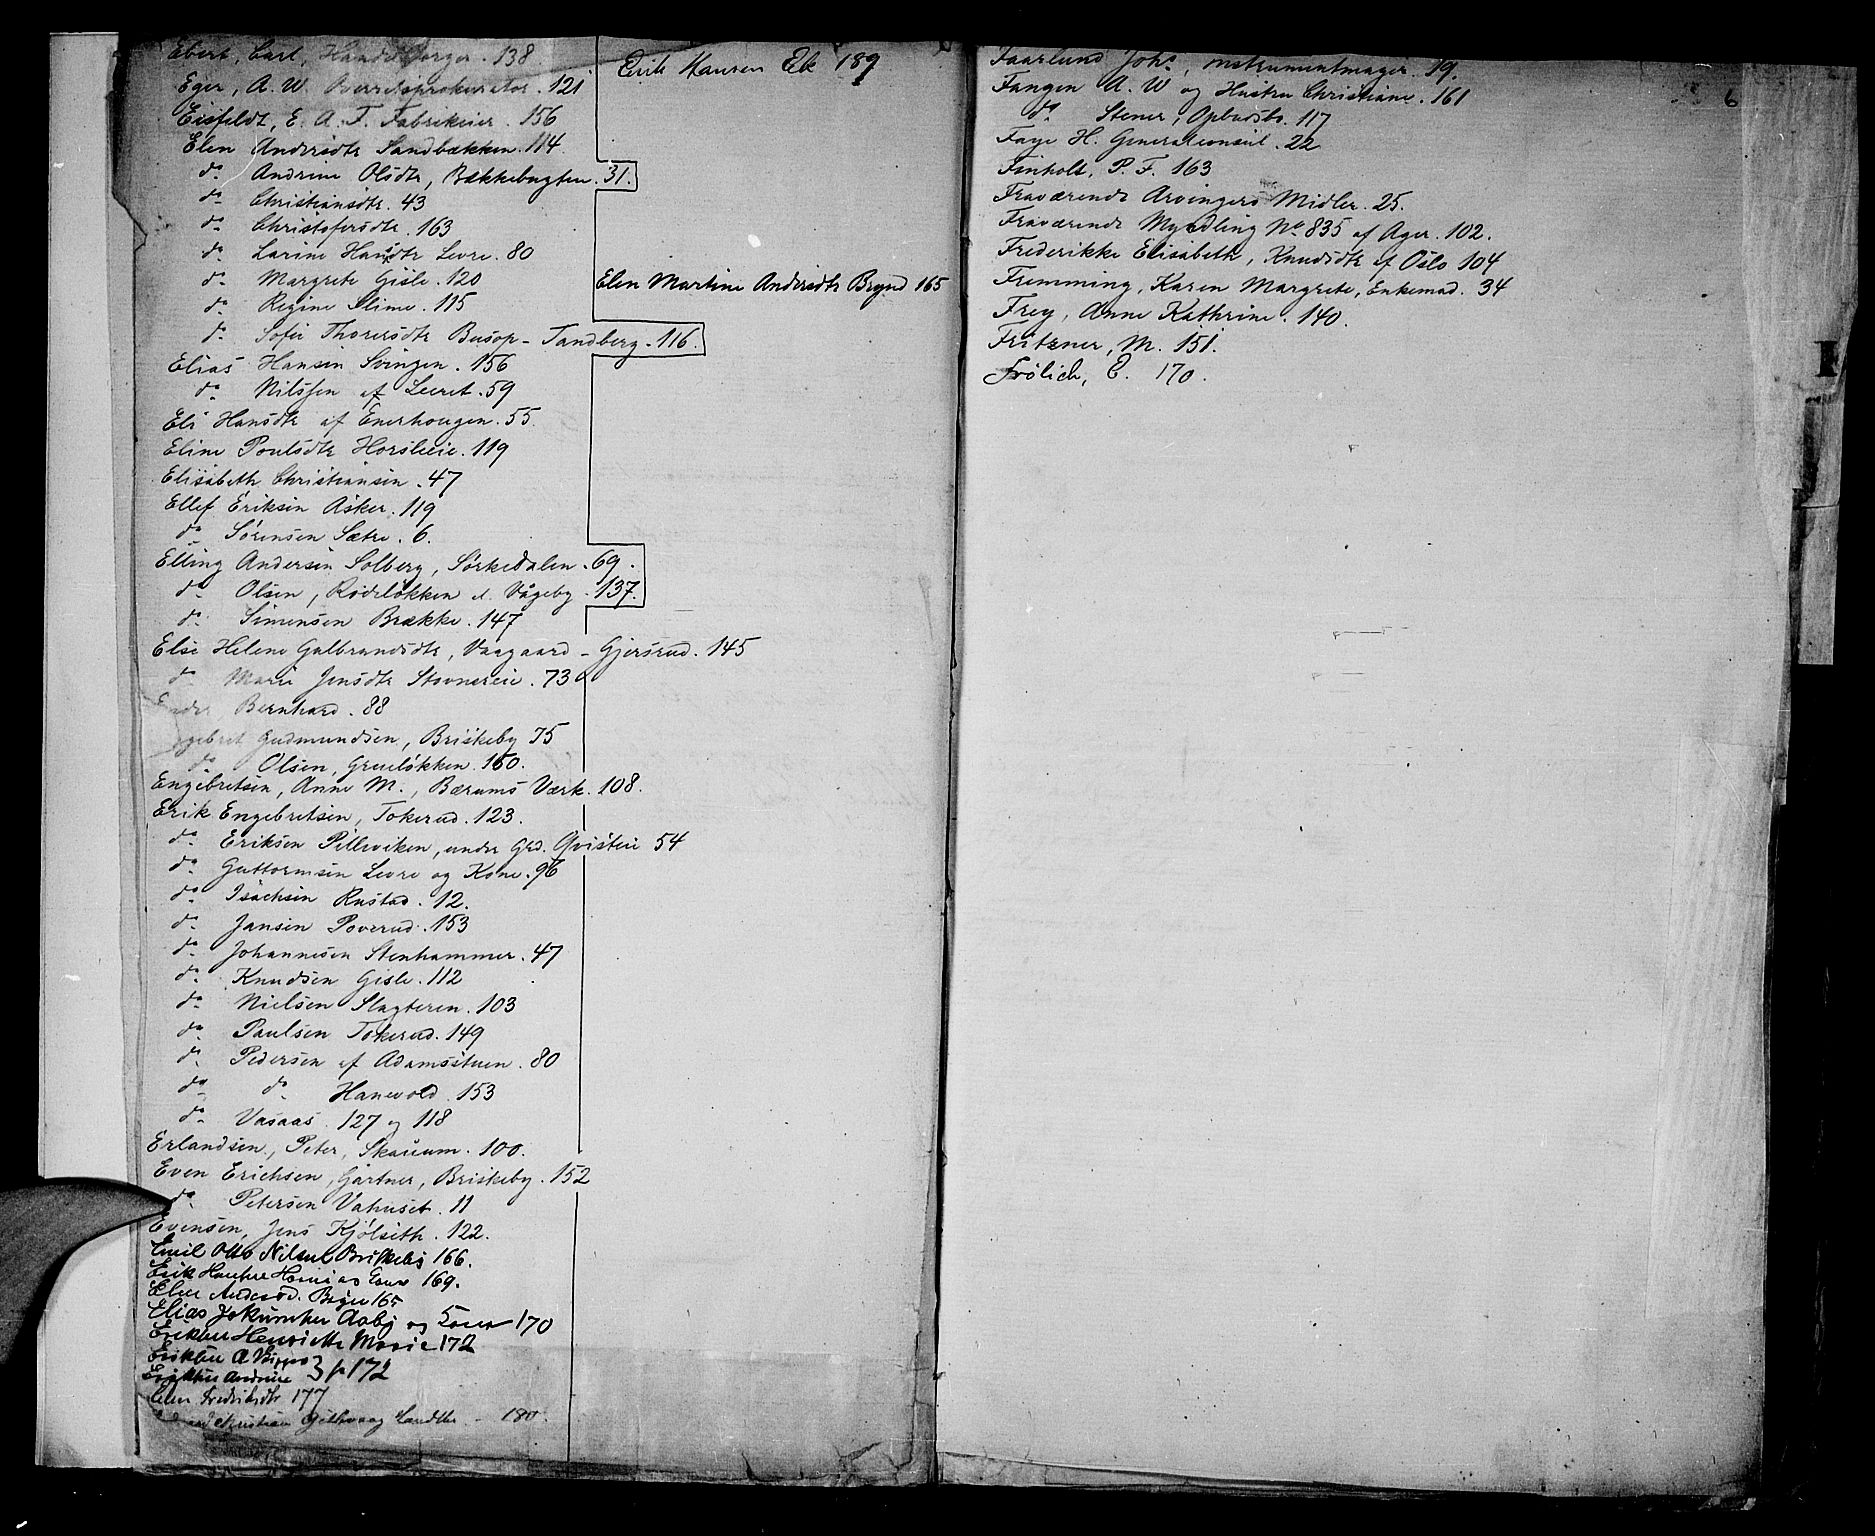 Ebert, Carl, Handelsborger. 138
Eger, A. W. Overretsprokurator. 121
Eisfeldt, E. A. F. Fabrikeier. 156
Elen Andersdtr Sandbækken. 114
do Andrine Olsdtr, Bækkebugten. 31.
do Christiansdtr. 43
do Christofersdtr. 163
do Larine Hansdtr Levre. 80
do Margrete Gisle. 120
do Regine Slime. 115
do Sofie Thorersdtr Busop - Tandberg. 116.
Elias Hansen Svingen. 156
do Nilssen af Leeret. 59
Eli Hansdtr af Enerhougen. 55.
Eline Poulsdtr Horsleie. 119
Elisabeth Christiansen. 47
Ellef Eriksen Asker. 119
do Sørensen Sætre. 6.
Elling Andersen Solberg, Sørkedalen. 69.
do Olsen, Rodeløkken v. Vågeby. 137.
do Simensen Brække. 147
Else Helene Gulbrandsdtr, Vaagaard - Gjersrud. 145
do Marie Jensdtr Stovnereie. 73
Bernhard. 88
gebret Gudmundsen, Briskeby 75
do Olsen, Grueløkken. 160.
Engebretsen, Anne M., Bærums Værk. 108.
Erik Engebretsen, Tokerud. 123.
do Eriksen Pilleviken, under Grd. Qvisteie 54
do Guttormsen Levre og Kone. 96
do Isachsen Rustad. 12.
do Jansen Poverud. 153
do Johannesen Stenhammer. 47
do Knudsen Gisle. 112
do Nielsen Slagteren. 103
do Paulsen Tokerud. 149
do Pedersen af Adamsstuen. 80
do do Hanevold. 153
do Vasaas. 127 og 118
Erlandsen, Peter, Skarum. 100.
Even Erichsen, Gartner, Briskeby. 152
do Petersen Vahuset. 11
Evensen, Jens Kjølseth. 122.
Emil Otto Nilsen Briskeby 166.
Erik 169.
Elen Andersd. 165
Elias Aaby og Kone 170
Eriksen Henriette Marie 172
Eriksen A
Eriksen Andrine } p 172
Elen Fredriksdtr 177
Christian 180.
Erik Hansen Ek 189
Elen Martine Andersdtr Brynd 165
6
Faarlund Johs, Instrumentmager. 19.
Fangen A. W og Hustru Christiane. 161
do Stener, Opbudsbo. 117
Faye H. Generalconsul. 22
Finholt, P. F. 163
Fraværende Arvingers Midler. 25.
Fraværende Myndling No 835 af Ager. 102.
Frederikke Elisabeth, Knudsdtr af Oslo 104
Fremming, Karen Margrete, Enkemad. 34
Frey, Anne Kathrine. 140.
Fritzner, M. 151.
Frölich, C. 170.